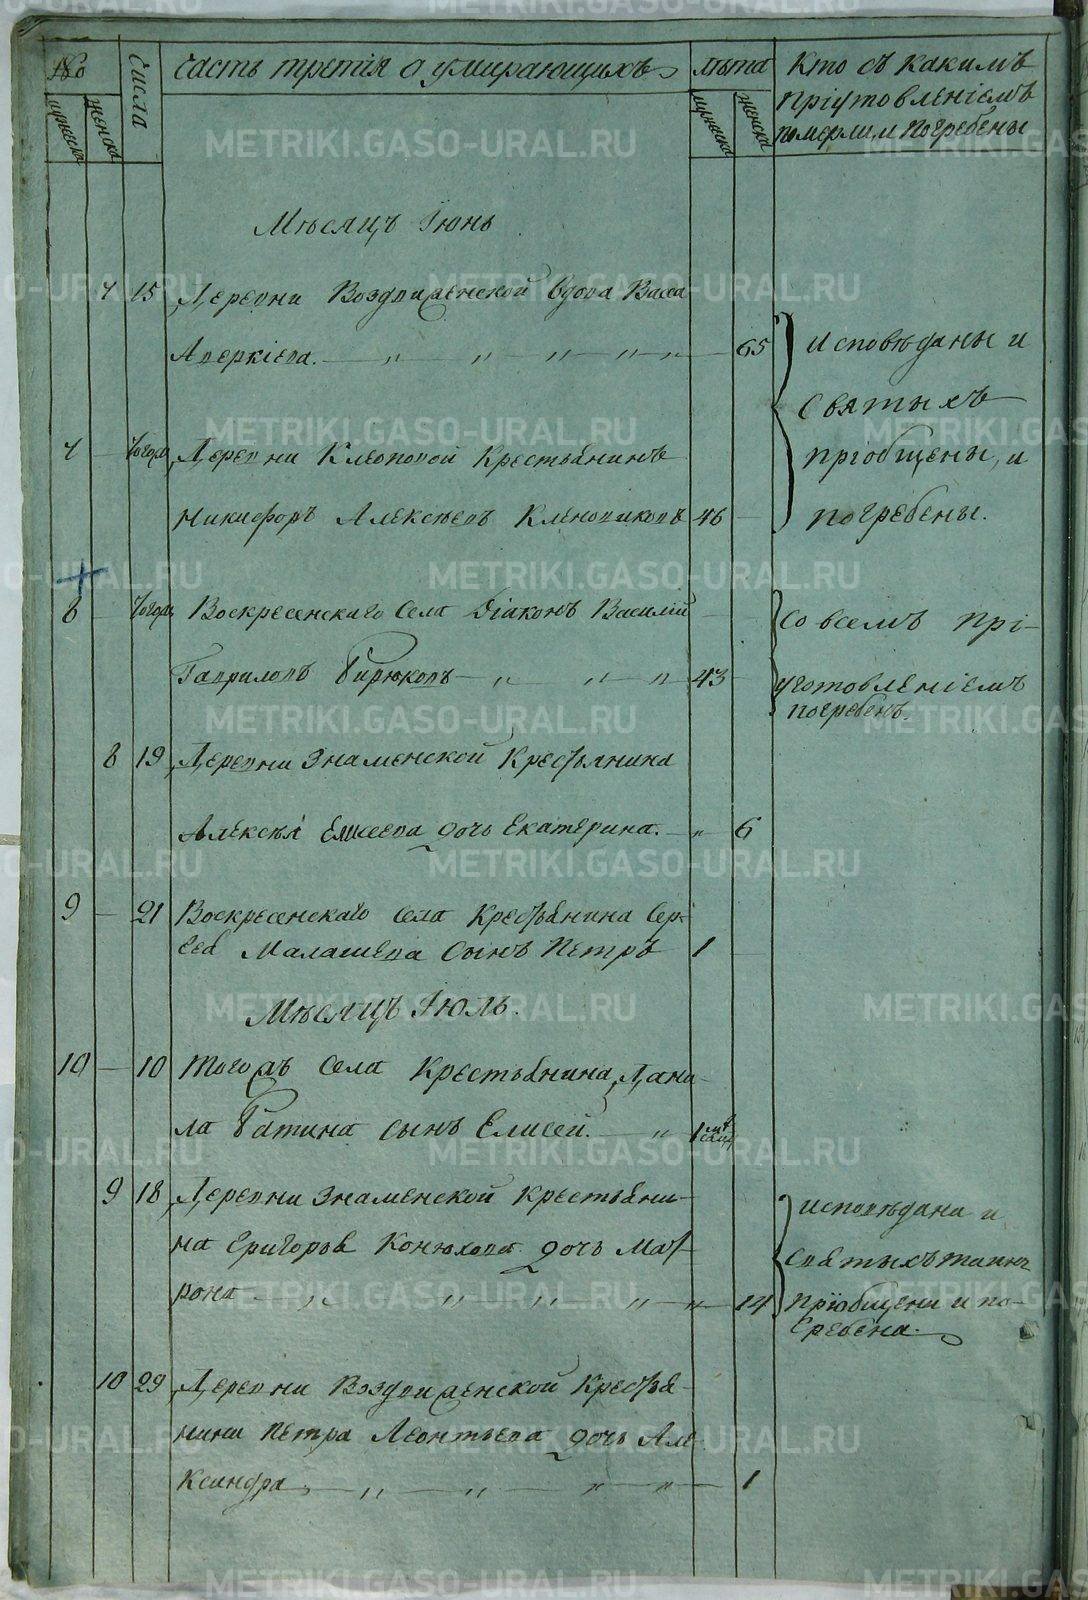 №
мужеска
женска
числа
Часть третія о умирающихъ
лѣта
мужеска
женска
Кто съ какимъ
пріуготовленіемъ
померли и погребены
Мѣсяцъ Іюнь
7 15 Деревни Воздвиженской вдова Васса
Аверкіева. 65
Исповѣданы и
Святыхъ
пріобщены, и
погребены.
7 тогож Деревни Клеоповой крестьянинъ
Никифоръ Алексѣевъ 46
8 тогож Воскресенскаго села Діаконъ Василій
Гавриловъ Бирюковъ 43
Со всемъ прі-
уготовленіемъ
погребенъ.
8 19 Деревни Знаменской крестьянина
Алексѣя Елисеева дочь Екатерина. 6
9 21 Воскресенскаго села крестьянина Сер-
гея Малашева сынъ Петръ 1
Мѣсяцъ Іюль.
10 10 Тогожъ села крестьянина Дани-
ла Батина сынъ Елисей. 1 мѣсяц
9 18 Деревни Знаменской крестьяни-
на Григорья Конюхова дочь Мат-
рона 14
исповѣдана и
Святыхъ таинъ
пріобщена и по-
гребена.
10 29 Деревни Воздвиженской крестья-
нина Петра Леонтьева дочь Але-
ксандра 1
METRIKI.GASO-URAL.RU